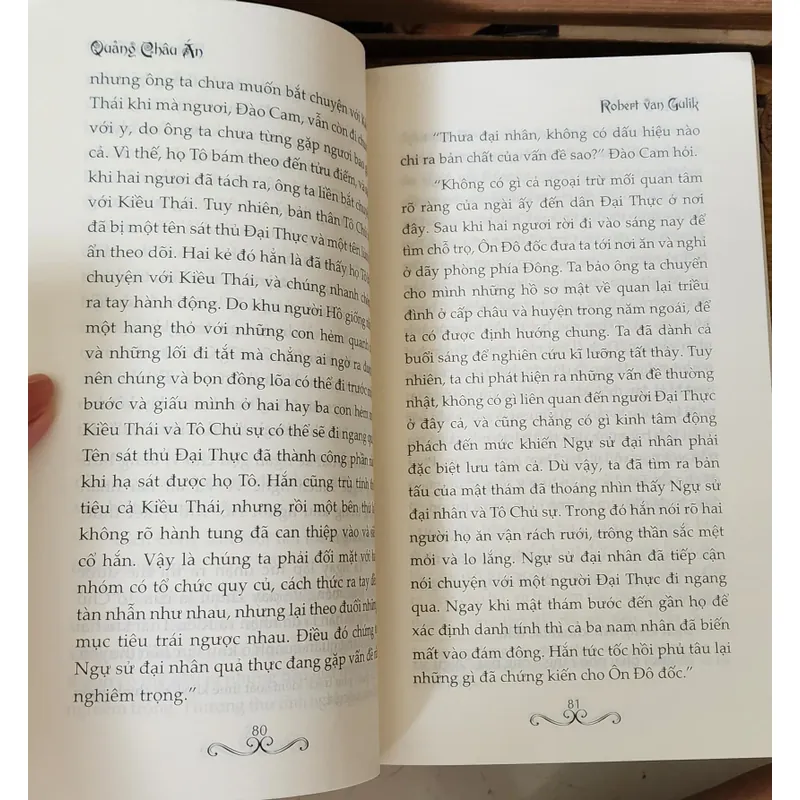 Quảng Châu Án
nhưng ông ta chưa muốn bắt chuyện với
Thái khi mà ngươi, Đào Cam, vẫn còn đi
với y, do ông ta chưa từng gặp ngươi bao
cả. Vì thế, họ Tô bám theo đến tửu điếm,
khi hai ngươi đã tách ra, ông ta liền bắt
với Kiều Thái. Tuy nhiên, bản thân Tô
đã bị một tên sát thủ Đại Thực và một tên
ẩn theo dõi. Hai kẻ đó hẳn là đã thấy họ Tô
chuyện với Kiều Thái, và chúng nhanh
ra tay hành động. Do khu người Hồ giống
một hang thỏ với những con hẻm quanh
và những lối đi tắt mà chẳng ai ngờ ra
nên chúng và bọn đồng lõa có thể đi trước
bước và giấu mình ở hai hay ba con hẻm
Kiều Thái và Tô Chủ sự có thể sẽ đi ngang
Tên sát thủ Đại Thực đã thành công phần
khi hạ sát được họ Tô. Hắn cũng trù tính
tiêu cả Kiều Thái, nhưng rồi một bên thứ
không rõ hành tung đã can thiệp vào và
cổ hắn. Vậy là chúng ta phải đối mặt với
nhóm có tổ chức quy củ, cách thức ra tay
tàn nhẫn như nhau, nhưng lại theo đuổi
mục tiêu trái ngược nhau. Điều đó chứng
Ngự sử đại nhân quả thực đang gặp vấn đề
nghiêm trọng.”
80
Robert van Gulik
“Thưa đại nhân, không có dấu hiệu nào
chỉ ra bản chất của vấn đề sao?” Đào Cam hỏi.
“Không có gì cả ngoại trừ mối quan tâm
rõ ràng của ngài ấy đến dân Đại Thực ở nơi
đây. Sau khi hai ngươi rời đi vào sáng nay để
tìm chỗ trọ, Ôn Đô đốc đưa ta tới nơi ăn và nghỉ
ở dãy phòng phía Đông. Ta bảo ông ta chuyển
cho mình những hồ sơ mật về quan lại triều
đình ở cấp châu và huyện trong năm ngoái, để
ta có được định hướng chung. Ta đã dành cả
buổi sáng để nghiên cứu kĩ lưỡng tất thảy. Tuy
nhiên, ta chỉ phát hiện ra những vấn đề thường
nhật, không có gì liên quan đến người Đại Thực
ở đây cả, và cũng chẳng có gì kinh tâm động
phách đến mức khiến Ngự sử đại nhân phải
đặc biệt lưu tâm cả. Dù vậy, ta đã tìm ra bản
tấu của mật thám đã thoáng nhìn thấy Ngự sử
đại nhân và Tô Chủ sự. Trong đó hắn nói rõ hai
người họ ăn vận rách rưới, trông thần sắc mệt
mỏi và lo lắng. Ngự sử đại nhân đã tiếp cận
nói chuyện với một người Đại Thực đi ngang
qua. Ngay khi mật thám bước đến gần họ để
xác định danh tính thì cả ba nam nhân đã biến
mất vào đám đông. Hắn tức tốc hồi phủ tâu lại
những gì đã chứng kiến cho Ôn Đô đốc.”
81